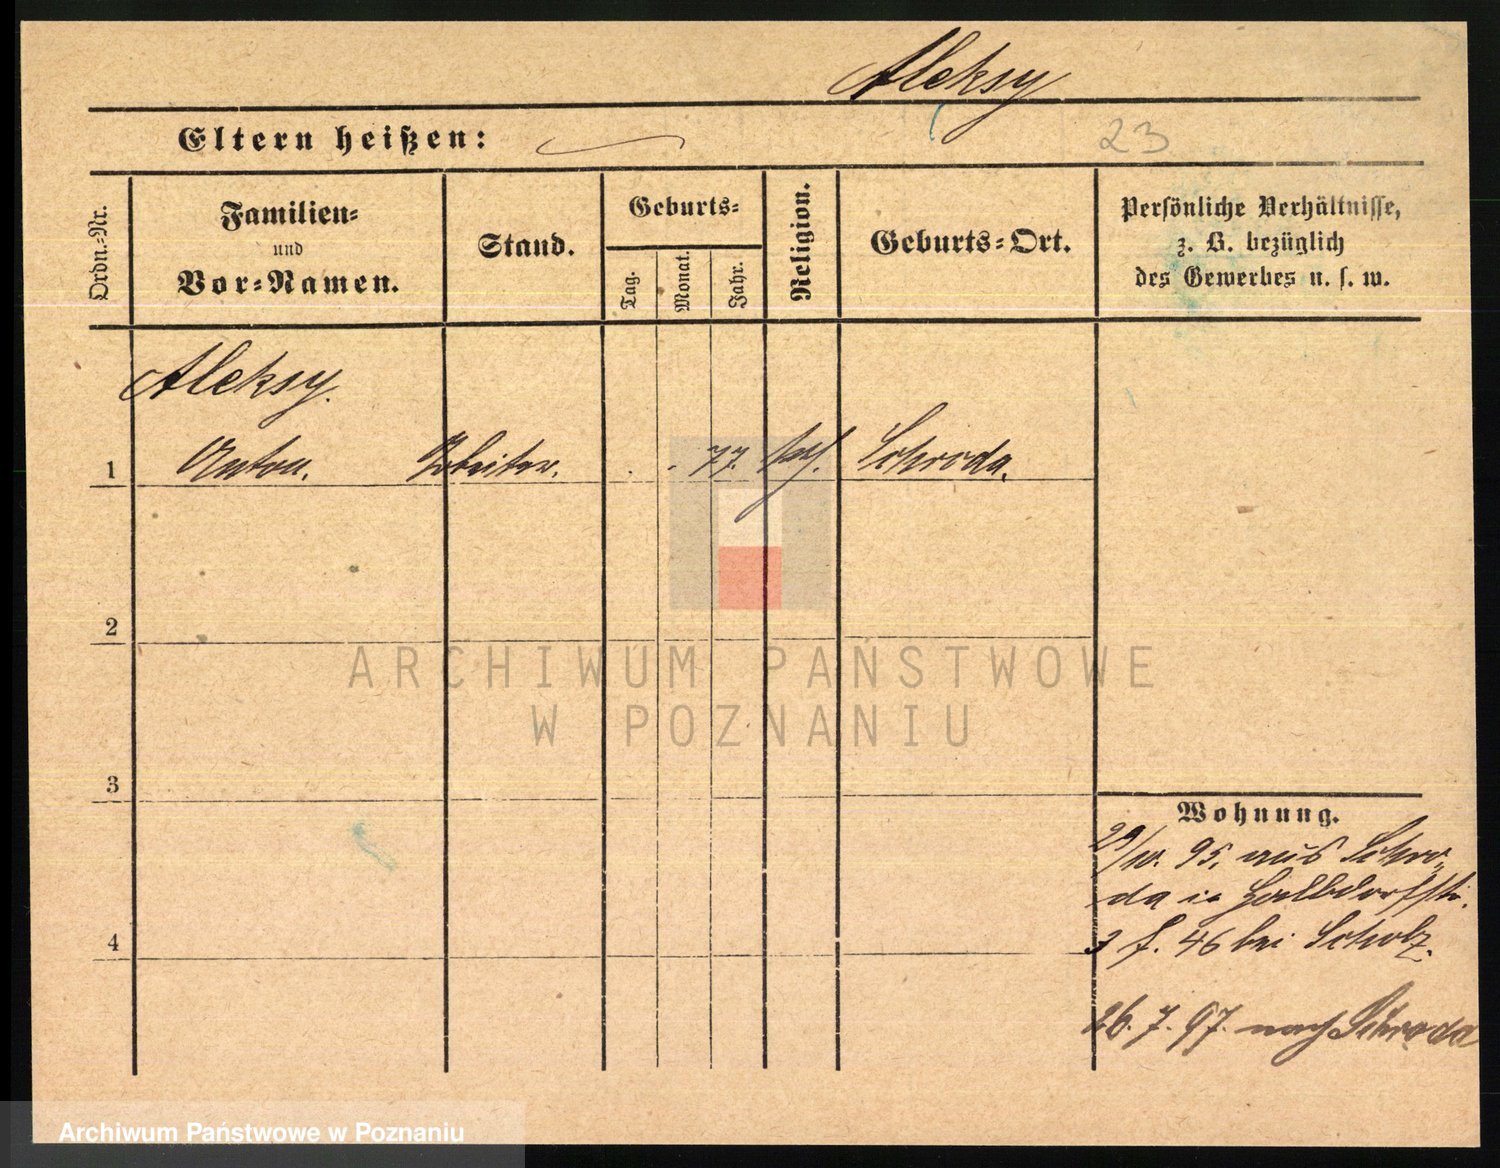 Aleksy
Eltern heißen:
23
Ordn.-Nr.
Familien-
und
Vor-Namen.
Stand.
Geburts-
Tag.
Monat.
Jahr.
Religion.
Geburts-Ort.
Persönliche Verhältnisse,
z. B. bezüglich
des Gewerbes u. s. w.
Aleksy.
1 Anton. Arbeiter. 77. kath. Schroda.
2
3
4
Wohnung.
29/10. 95. aus Schro-
da in Halbdorfstr.
3 f. 46 bei Scholz.
26. 7. 97. nach Schroda
ARCHIWUM PAŃSTWOWE
W POZNANIU
Archiwum Państwowe w Poznaniu